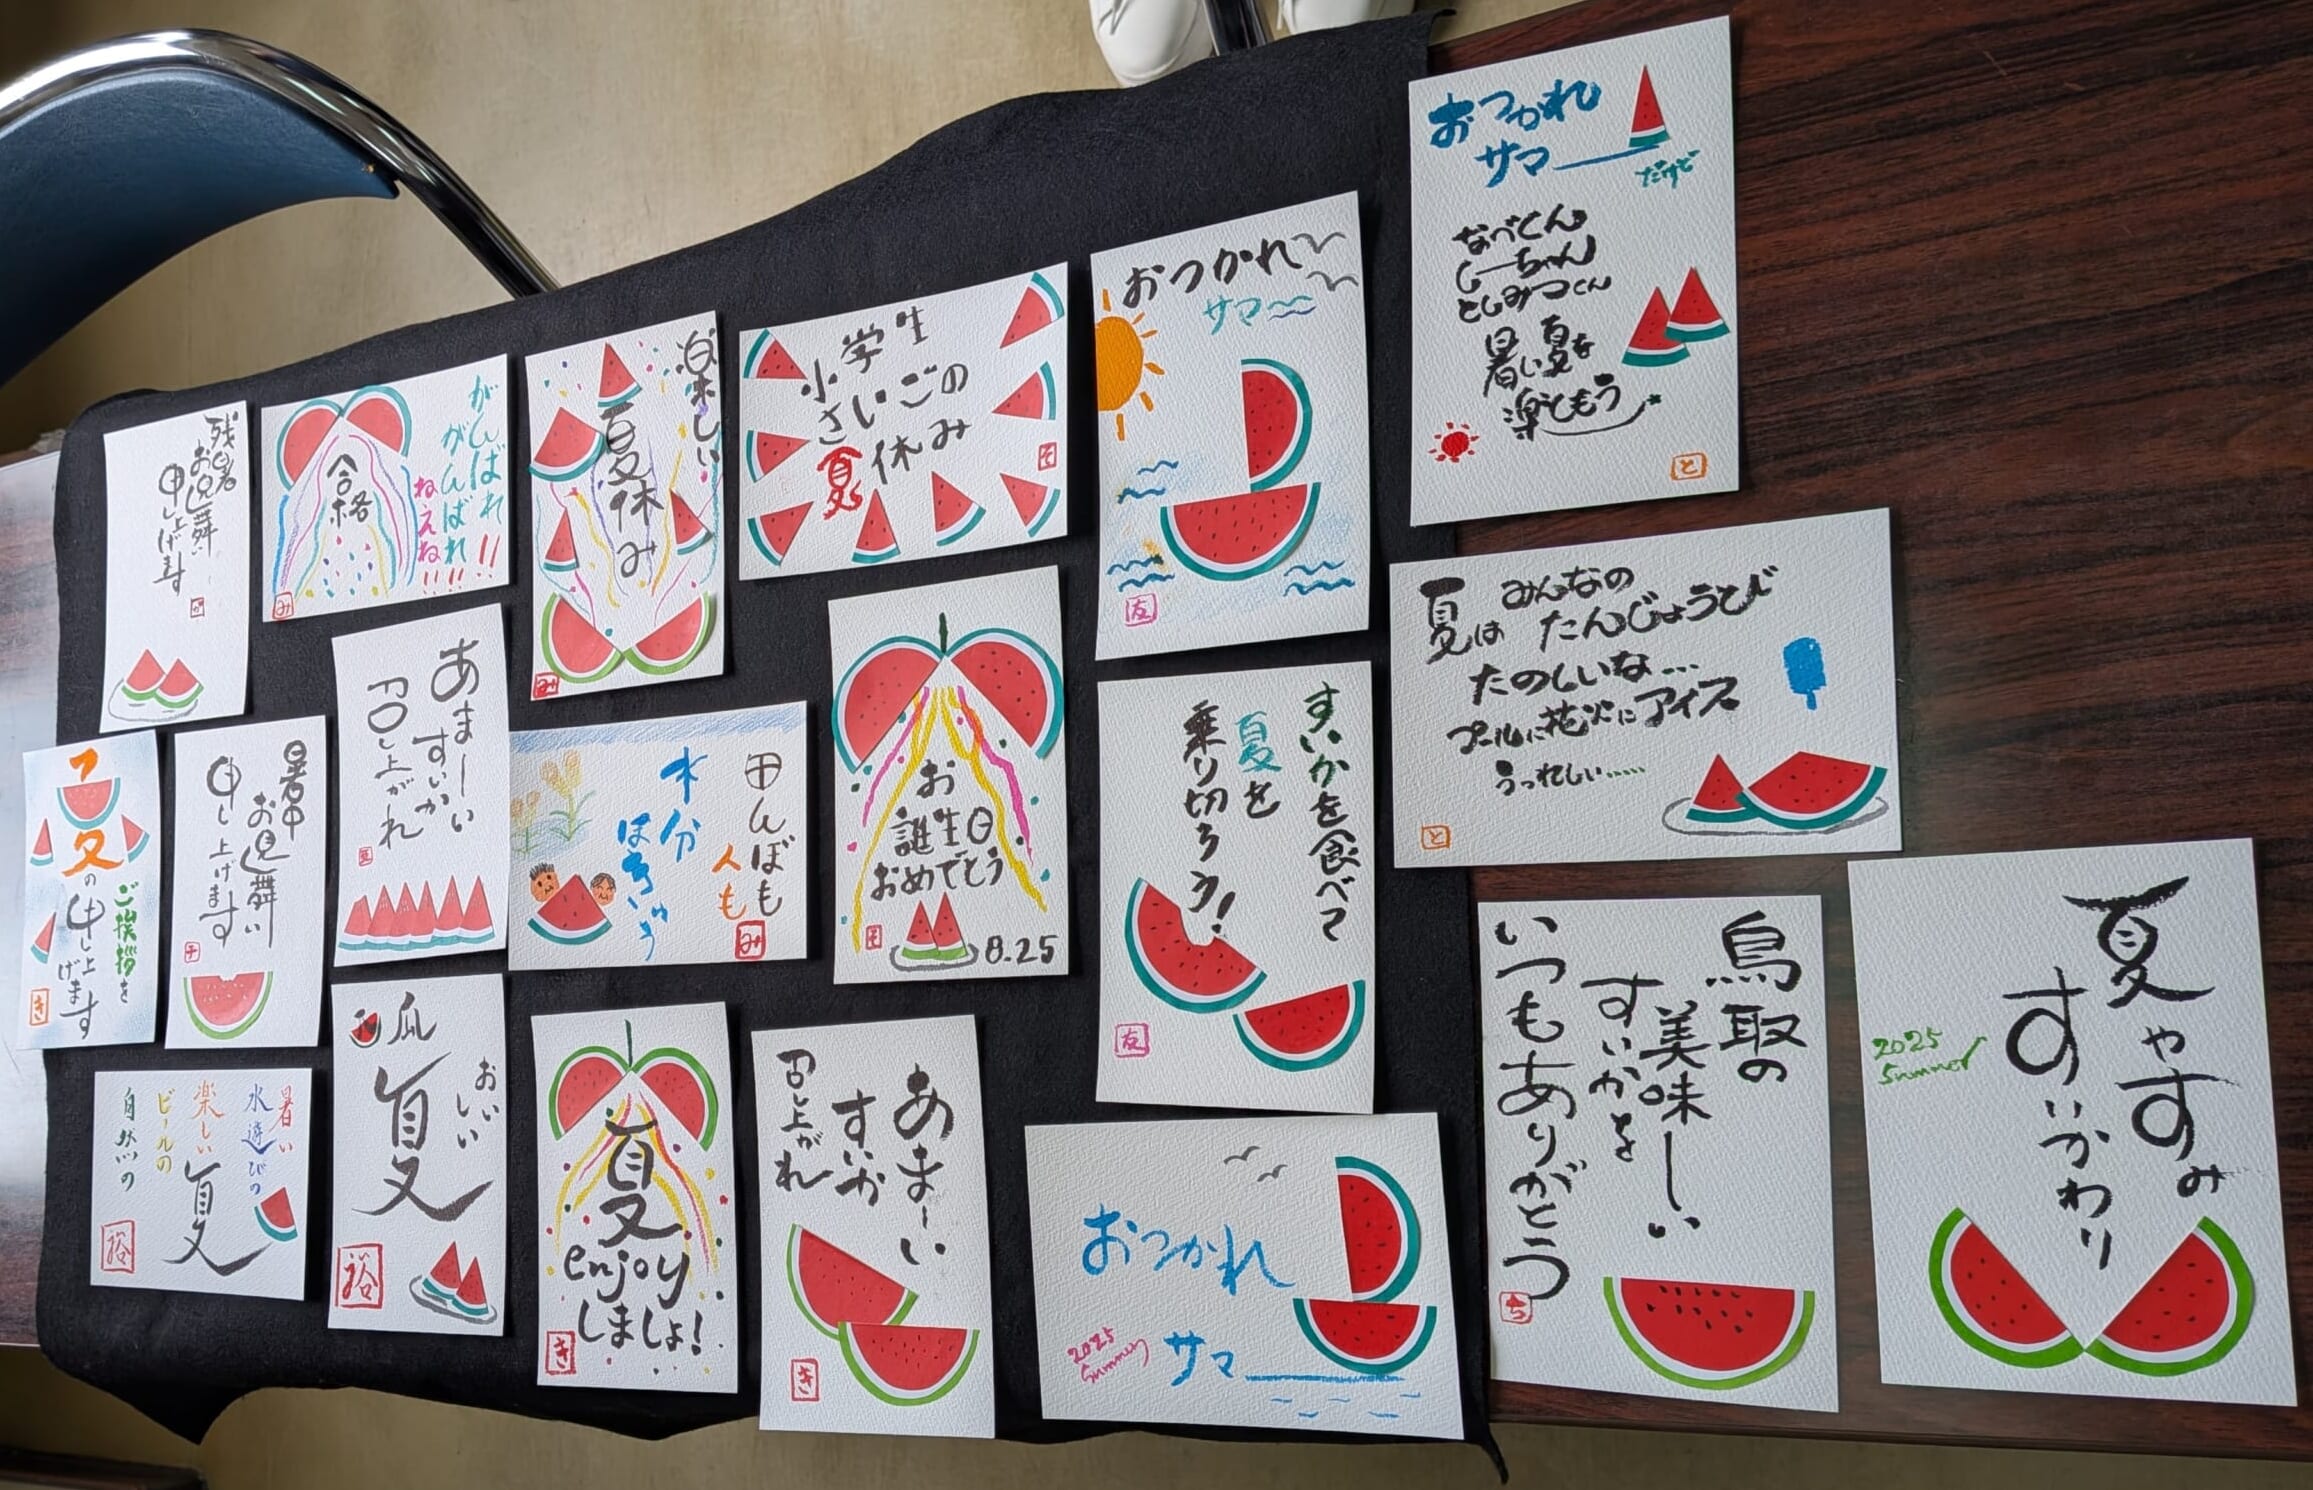 残暑
お見舞
申し上げます
が
がんばれ!!
がんばれ
ねえね!!!
合格
み
楽しい
夏休み
み
小学生
さいごの
夏休み
そ
おつかれ
サマ〜
友
おつかれ
サマー
だけど
なべくん
しーちゃん
としみつくん
暑い夏を
楽ともう
と
夏は みんなの
たんじょうとび
たのしいな…
プールに花火にアイス
うっれしい.....
と
夏の
ご挨拶を
申し上
げます
き
暑中
お見舞い
申し上げます
チ
あまーい
すいか
召し上がれ
田んぼも
人も
水分
ほきゅう
み
お
誕生日
おめでとう
8.25
そ
すいかを食べて
夏を
乗り切ろう!
友
暑い
水遊びの
楽しい
ビールの
自然の
夏
裕
瓜
おいしい
夏
裕
夏
enjoy
しましょ!
き
あまーい
すいか
召し上がれ
き
おつかれ
サマ
2025
Summer
鳥取の
美味しーい
すいかを
いつもありがとう
ち
夏やすみ
すいかわり
2025
Summer